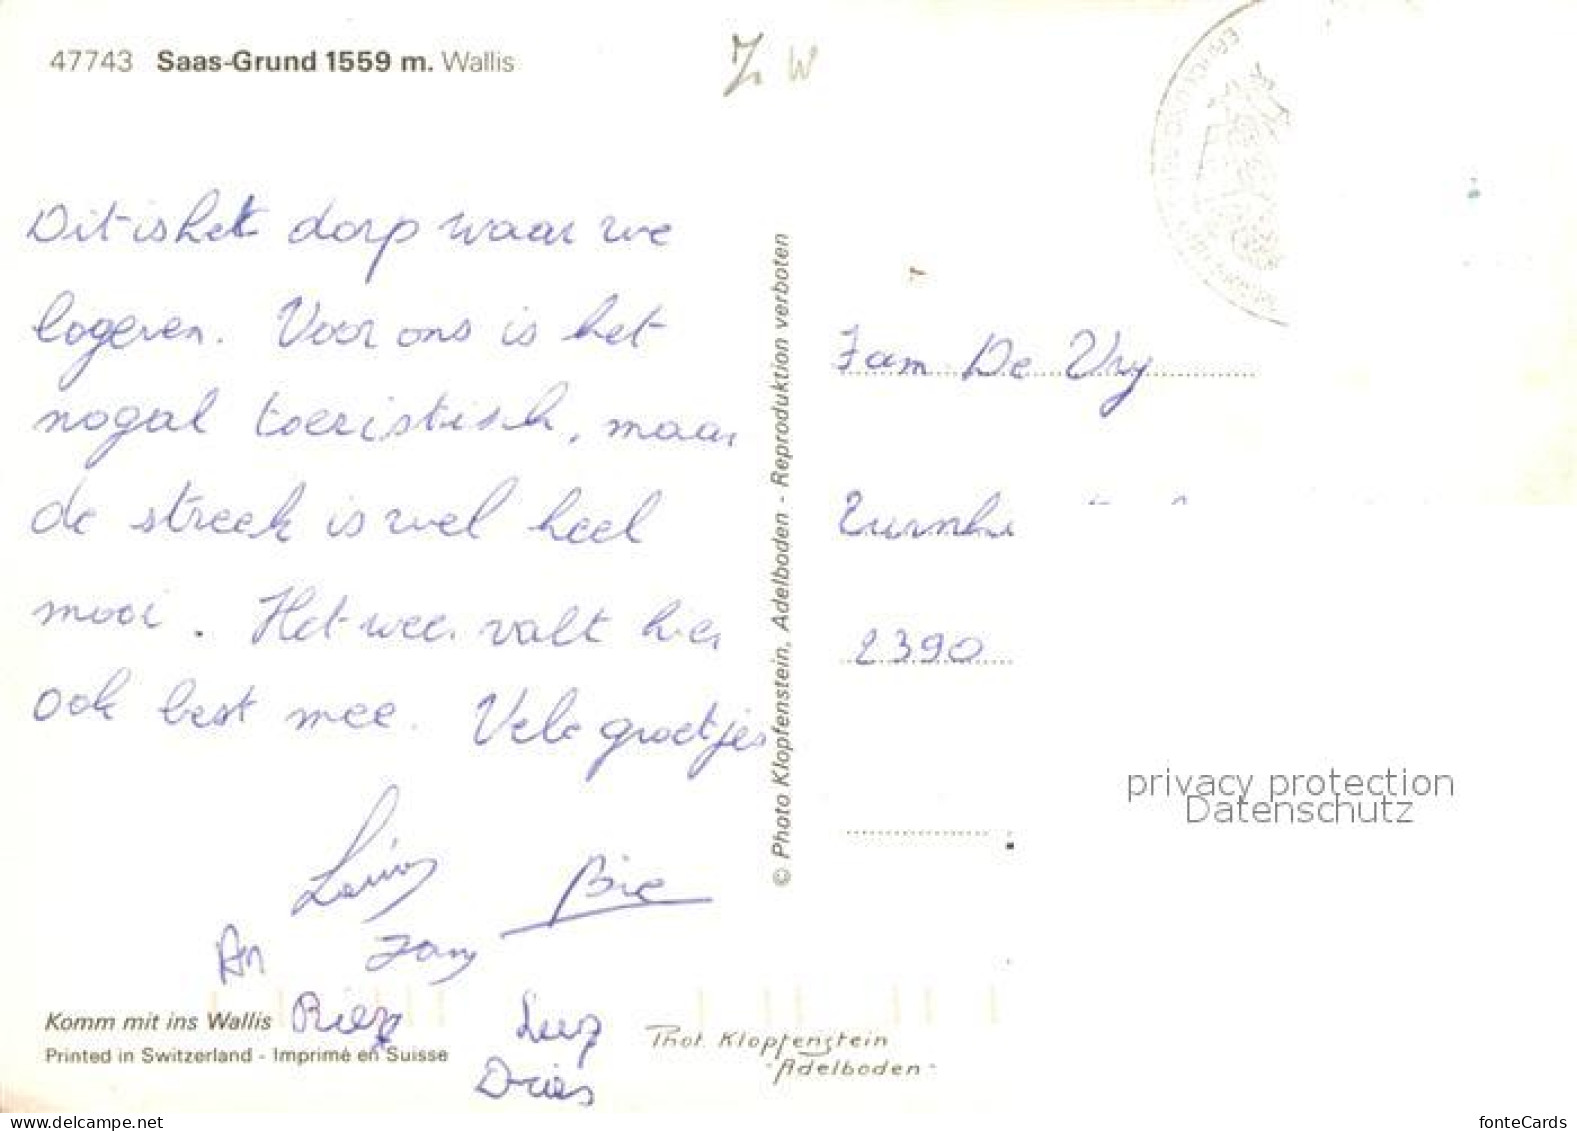 47743 Saas-Grund 1559 m. Wallis
Dit is het dorp waar we
logeren. Voor ons is het
nogal toeristisch, maar
de streek is wel heel
mooi. Het weer valt hier
ook best mee. Vele groetjes
An
Dries
Komm mit ins Wallis
Printed in Switzerland - Imprimé en Suisse
© Photo Klopfenstein, Adelboden - Reproduktion verboten
Phot. Klopfenstein
Adelboden
Fam De Vry
2390
privacy protection
Datenschutz
www.delcampe.net
fonteCards